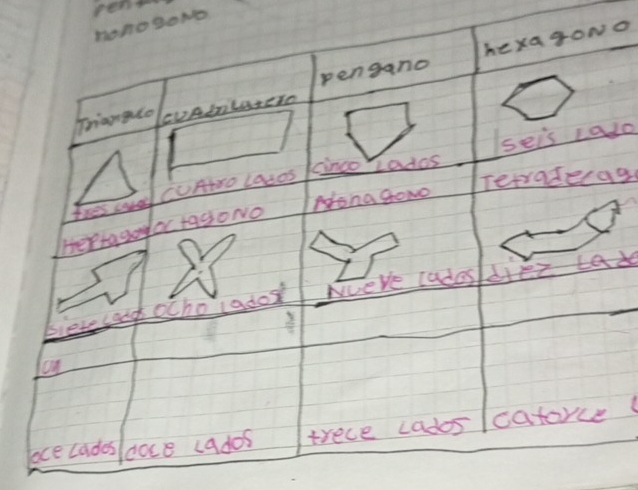 nonogono
Triangulo cuadrilatero pengano hexagono
tres lados cuatro lados cinco lados seis lado
Heptagono octagono Nonagono Tetradecag
siete lados ocho lados Nueve lados diez lado
on
oce lados doce lados trece lados catorce